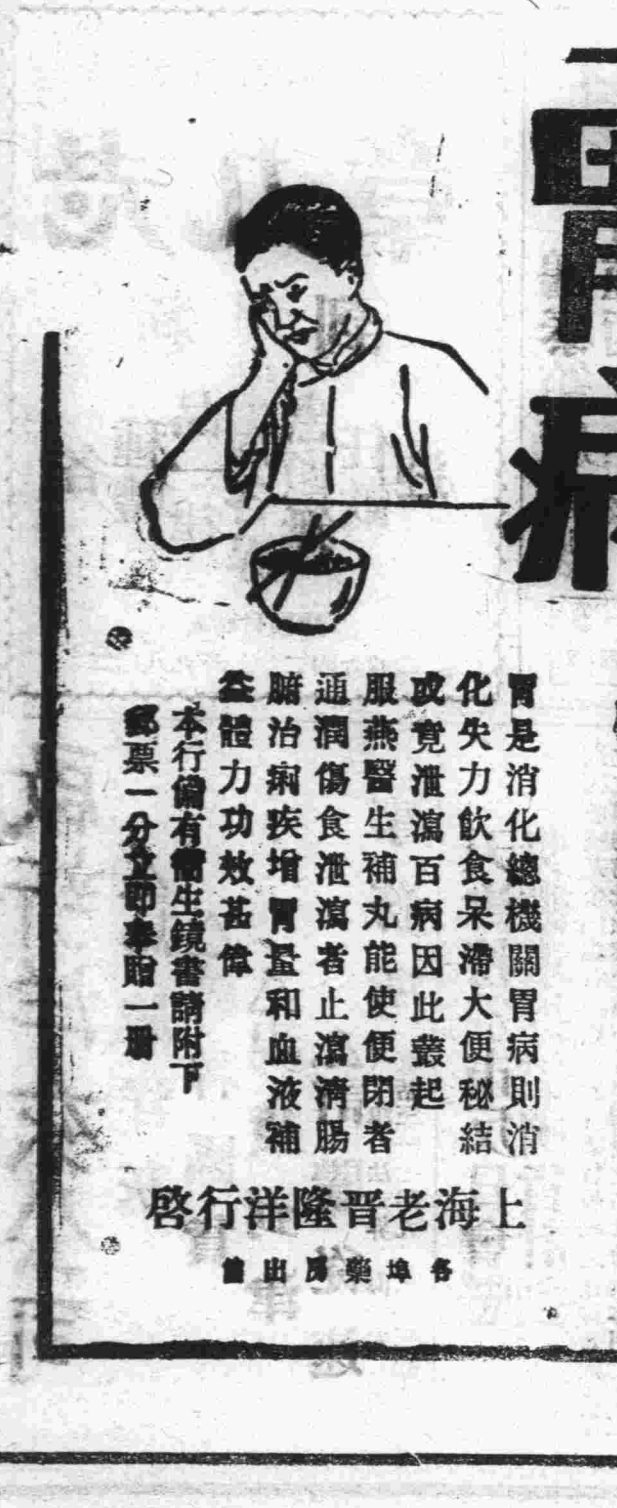 胃病
胃是消化總機關胃病則消
化失力飲食呆滯大便秘結
或竟泄瀉百病因此叢起
服燕醫生補丸能使便閉者
通潤傷食泄瀉者止瀉濟腸
腑治痢疾增胃量和血液補
益體力功效甚偉
本行備有衛生鏡書請附下
郵票一分立即奉贈一册
上海老晋隆洋行啓
各埠藥房出售